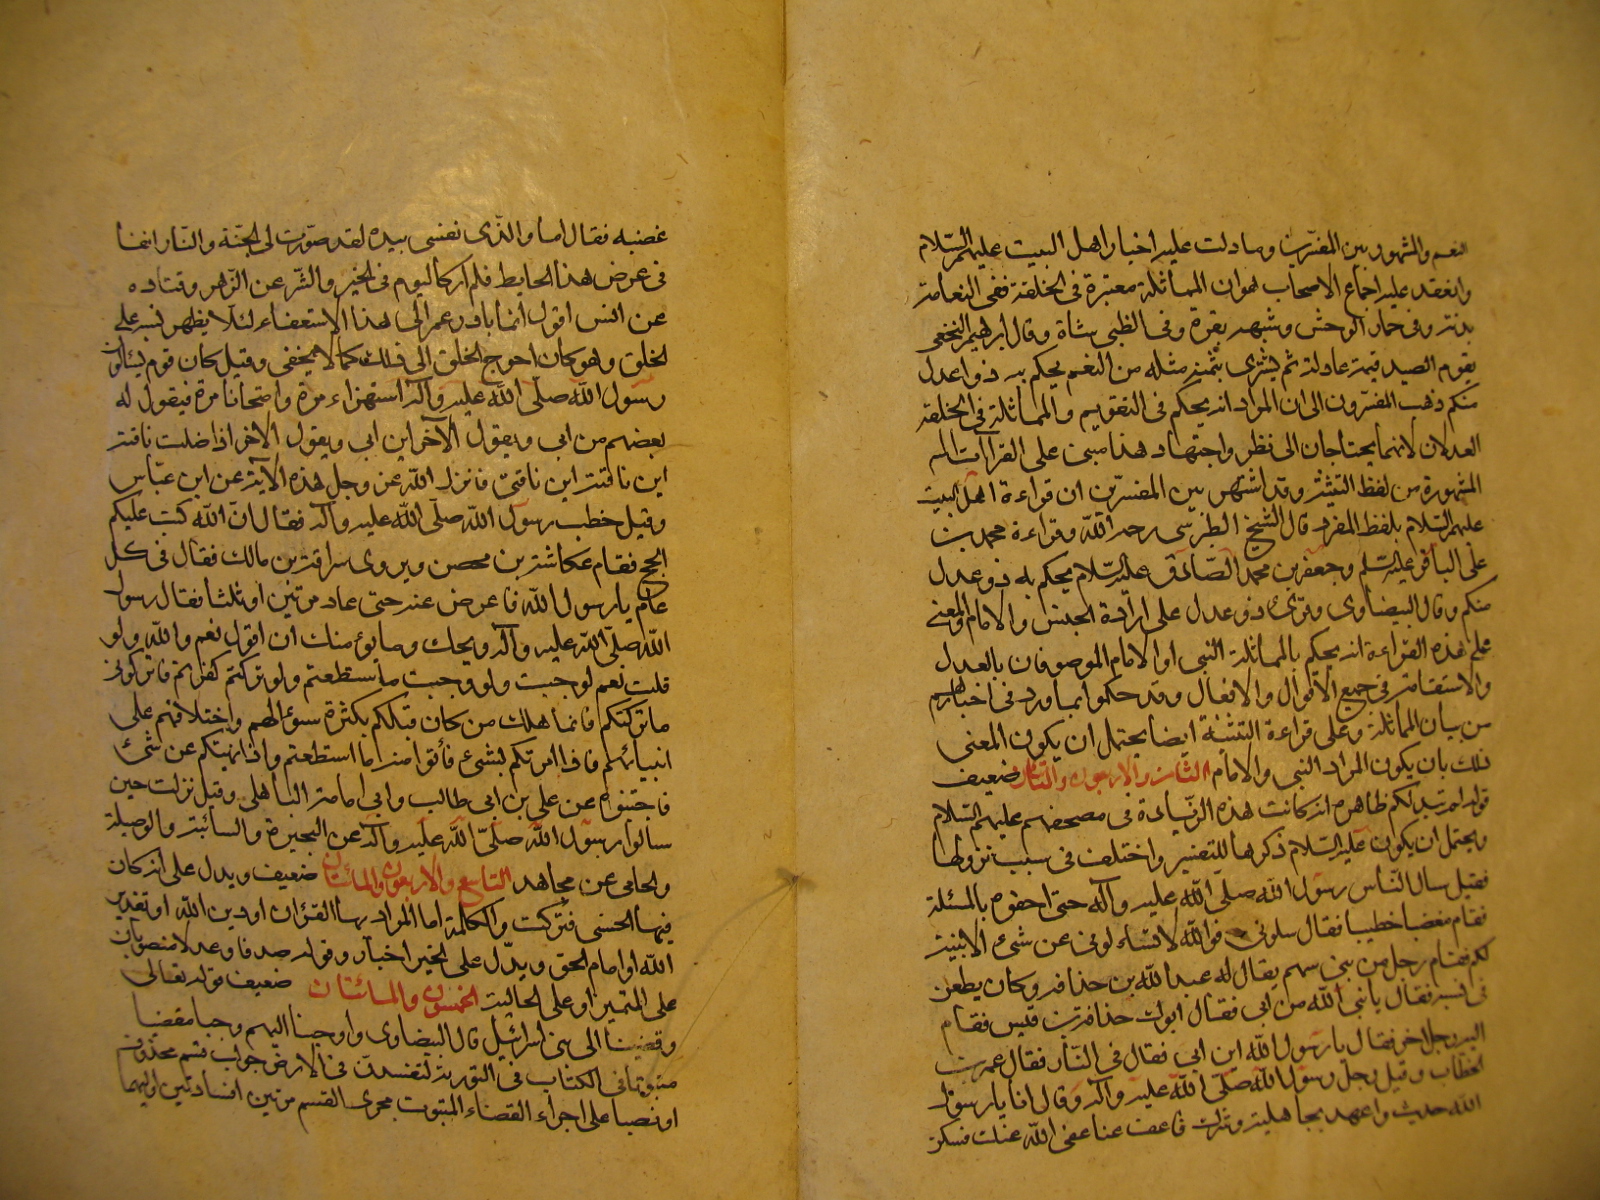 النعم والمشهور بين المفسرين وما دلت عليه اخبار اهل البيت عليهم السّلام
وانعقد عليه اجماع الاصحاب هو ان المماثلة معتبرة في الخلقة ففي النعامة
بدنة وفي حمار الوحش وشبهه بقرة وفي الظبي شاة وقال ابرهيم النخعي
يقوم الصيد قيمة عادلة ثم يشترى بثمنه مثله من النعم يحكم به ذوا عدل
منكم ذهب المفسرون الى ان المراد انه يحكم في التقويم والمماثلة في الخلقة
العدلان لانهما يحتاجان الى نظر واجتهاد هذا مبنى على القراءات
المشهورة من لفظ التثنية وقد اشتهر بين المفسرين ان قراءة اهل البيت
عليهم السّلام بلفظ المفرد قال الشيخ الطبرسى رحمه اللّه وقراءة محمد بن
على الباقر عليه السّلم وجعفر بن محمد الصّادق عليه السّلام يحكم به ذو عدل
منكم وقال البيضاوى وقرئ ذو عدل على ارادة الجنس والامام والمعنى
على هذه القراءة انه يحكم بالمماثلة النبى او الامام الموصوفان بالعدل
والاستقامة في جميع الاقوال والافعال وقد حكموا بما ورد في اخبارهم
من بيان المماثلة وعلى قراءة التثنية ايضا يحتمل ان يكون المعنى
ذلك بان يكون المراد النبى والامام الثامن والاربعون والمائتان ضعيف
قوله تبد لكم ظاهره انه كانت هذه الزّيادة في مصحفهم عليهم السّلام
ويحتمل ان يكون عليه السّلام ذكرها للتفسير واختلف في سبب نزولها
فقيل سال النّاس رسول اللّه صلى اللّه عليه وآله حتى احفوه بالمسئلة
فقام مغضبا خطيبا فقال سلونى فواللّه لا تسئلونى عن شئ الا بينته
لكم فقام رجل من بنى سهم يقال له عبد اللّه بن حذافه وكان يطعن
في نسبه فقال يا نبى اللّه من ابى فقال ابوك حذافة بن قيس فقام
اليه رجل اخر فقال يا رسول اللّه اين ابى فقال في النّار فقام عمر بن
الخطاب وقبل رجل رسول اللّه صلّى اللّه عليه وآله وقال انا يا رسول
اللّه حديث واعهد بجاهلية وشرك فاعف عنا عفى اللّه عنك فسكن
غضبه فقال اما والذّى نفسى بيده لقد صوّرت لى الجنّة والنّار انفا
في عرض هذا الحايط فلم ار كاليوم في الخير والشّر عن الزّهر وقتاده
عن انس اقول انما بادر عمر الى هذا الاستعفاء لئلا يظهر نسبه على
الخلق وهو كان احوج الخلق الى ذلك كما لا يخفى وقيل كان قوم يسئلون
رسول اللّه صلّى اللّه عليه وآله استهزاء مرة وامتحانا مرة فيقول له
بعضهم من ابى ويقول الآخر اين ابى ويقول الاخر اذا ضلت ناقته
اين ناقتى فانزل اللّه عز وجل هذه الآية عن ابن عبّاس
وقيل خطب رسول اللّه صلّى اللّه عليه وآله فقال انّ اللّه كتب عليكم
الحج فقام عكاشة بن محصن ويروى سراقة بن مالك فقال في كل
عام يا رسول اللّه فاعرض عنه حتى عاد مرتين او ثلثا فقال رسول
اللّه صلّى اللّه عليه وآله ويحك وما يؤمنك ان اقول نعم واللّه ولو
قلت نعم لوجبت ولو وجبت ما استطعتم ولو تركتم كفرتم فاتركونى
ما تركتكم فانما هلك من كان قبلكم بكثرة سؤالهم واختلافهم على
انبيائهم فاذا امرتكم بشئ فأتوا منه ما استطعتم واذا نهيتكم عن شئ
فاجتنبوه عن على بن ابى طالب وابى امامة الباهلى وقيل نزلت حين
سالوا رسول اللّه صلّى اللّه عليه وآله عن البحيرة والسائبة والوصيلة
والحامى عن مجاهد التاسع والاربعون والمائتان ضعيف ويدل على انه كان
فيها الحسنى فتركت والكلمة اما المراد بها القرءان او دين اللّه او تقدير
اللّه او امام الحق ويدّل على الخير اخبار وقوله صدقا وعدلا منصوبان
على التمييز او على الحالية الخمسون والمائتان ضعيف قوله تعالى
وقضينا الى بنى اسرائيل قال البيضاوى واوحينا اليهم وحيا مقضيا
مبتوتا في الكتاب في التورية لتفسدنّ في الارض جواب قسم محذوف
او قضينا على اجراء القضاء المبتوت مجرى القسم مرتين افسادتين اوليهما